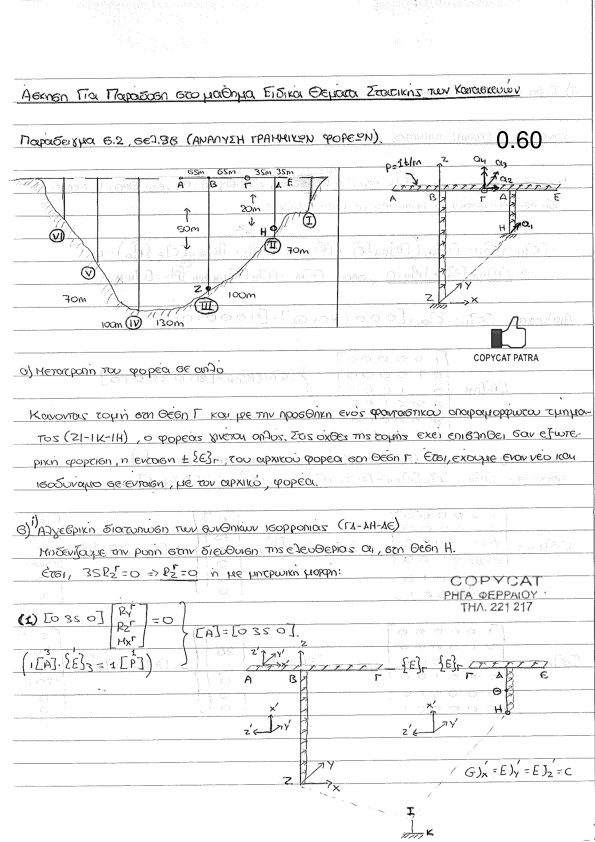 Άσκηση Για Παράδοση στο μάθημα Ειδικά Θέματα Στατικής των Κατασκευών
Παράδειγμα 6.2, σελ.98 (ΑΝΑΛΥΣΗ ΓΡΑΜΜΙΚΩΝ ΦΟΡΕΩΝ).
0.60
65m 65m 35m 35m
A B Γ Δ E
50m
20m
H
I
II
70m
Z
III
100m
VI
V
70m
100m
IV
130m
P=1t/m
z
a4 a3
a2
A B Γ Δ E
H a1
Z
Y
X
COPYCAT PATRA
α) Μετατροπή του φορέα σε απλό
Κάνοντας τομή στη θέση Γ και με την προσθήκη ενός φανταστικού απαραμόρφωτου τμήμα-
τος (ΖΙ-ΙΚ-ΙΗ), ο φορέας γίνεται απλός. Στις όχθες της τομής έχει επιβληθεί σαν εξωτε-
ρική φόρτιση, η ένταση ± {E}Γ, του αρχικού φορέα στη θέση Γ. Έτσι, έχουμε έναν νέο και
ισοδύναμο σε ένταση, με τον αρχικό, φορέα.
β) i) Αλγεβρική διατύπωση των συνθηκών ισορροπίας (ΓΔ-ΔΗ-ΔΕ)
Μηδενίζουμε την ροπή στην διεύθυνση της ελευθερίας a1, στη θέση Η.
Έτσι, 35Rz^Γ=0 => Rz^Γ=0 ή με μητρωική μορφή:
COPYCAT
ΡΗΓΑ ΦΕΡΡΑΙΟΥ
ΤΗΛ. 221 217
(1) [0 35 0] [Ry^Γ Rz^Γ Mx^Γ] = 0
[A]=[0 35 0].
(1[A]^3 · {E}3^1 = 1[P]^1)
z' y' x' z
A B Γ {E}Γ {E}Γ Γ Δ E
Θ
H
x'
y'
z'
x'
y'
z'
Z
Y
X
G)x' = E)y' = E)z' = C
I
K